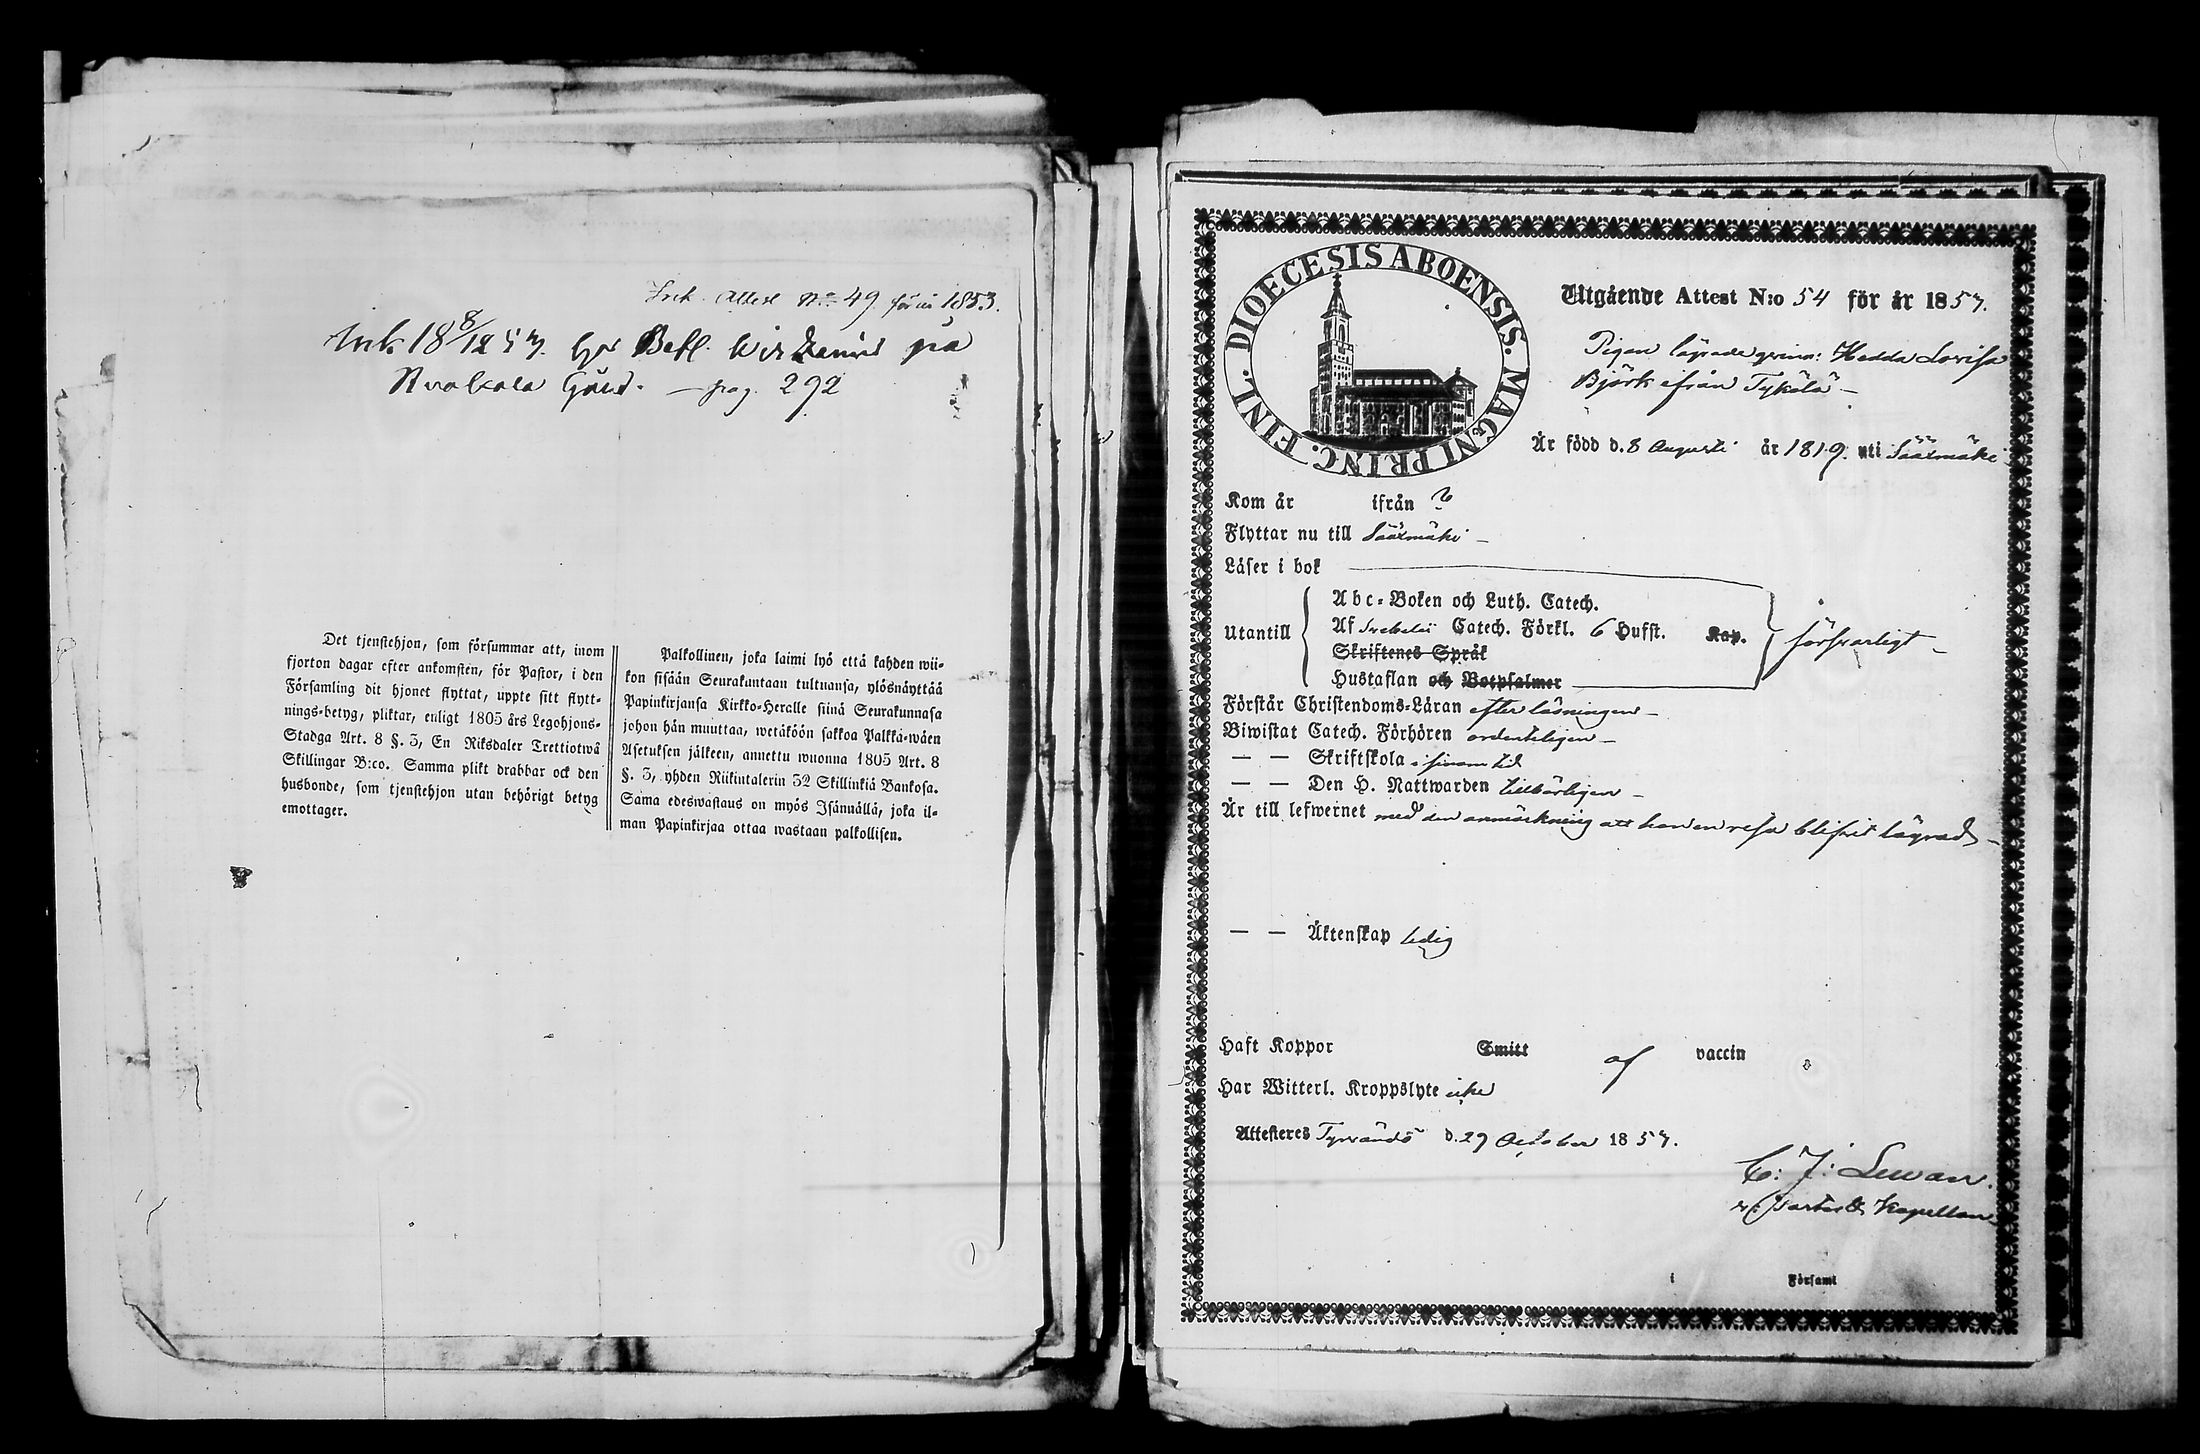 Ink. Attest No 49 för år 1853.
Ink 18 8/12 57. hos Befl. Widenius på
Gård. — pag. 292
Det tjenstehjon, som försummar att, inom
fjorton dagar efter ankomsten, för Pastor, i den
Församling dit hjonet flyttat, uppte sitt flytt-
nings-betyg, pliktar, enligt 1805 års Legohjons-
Stadga Art. 8 §. 3, En Riksdaler Trettiotwå
Skillingar B:co. Samma plikt drabbar ock den
husbonde, som tjenstehjon utan behörigt betyg
emottager.
Palkollinen, joka laimi lyö että kahden wii-
kon sisään Seurakuntaan tultuansa, ylösnäyttää
Papinkirjansa Kirkko-Heralle siinä Seurakunnasa
johon hän muuttaa, wetäköön sakkoa Palkka-wäen
Asetuksen jälkeen, annettu wuonna 1805 Art. 8
§. 3, yhden Riikintalerin 32 Skillinkiä Bankosa.
Sama edeswastaus on myös Isännällä, joka il-
man Papinkirjaa ottaa wastaan palkollisen.
DIOECESIS ABOENSIS. MAGNI PRINC. FINL.
Utgående Attest N:o 54 för år 1857.
Pigan lägrade qvinn: Hedda Lovisa
Björk ifrån Tykölä —
Är född d. 8 Augusti år 1819. uti Sääxmäki
Kom år ifrån ?
Flyttar nu till Sääxmäki —
Läser i bok
Abc-Boken och Luth. Catech.
Utantill Af Svebelii Catech. Förkl. 6 Hufst. Kap. försvarligt —
Skriftenes Språk
Hustaflan och Botpsalmer
Förstår Christendoms-Läran efter läsningen —
Biwistat Catech. Förhören ordenteligen —
— — Skriftskola i sinom tid
— — Den H. Nattwarden tillbörligen —
Är till lefwernet med den anmärkning att hon en resa blifvit lägrad —
— — Äktenskap ledig
Haft Koppor Smitt af vaccin
Har Witterl. Kroppslyte icke
Attesteres Tyrvändö d. 29 October 1857.
C: J: Lewan.
Kapellan
i Församl